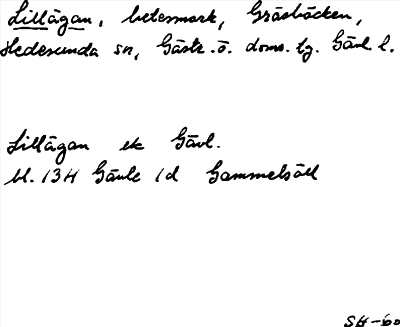 Lillägan, betesmark, Gräsbäcken,
Hedesunda sn, Gästr. ö. doms. tg. Gävl. l.
Lillägan ek Gävl.
bl. 13H Gävle 1d Gammelsäll
SH-60